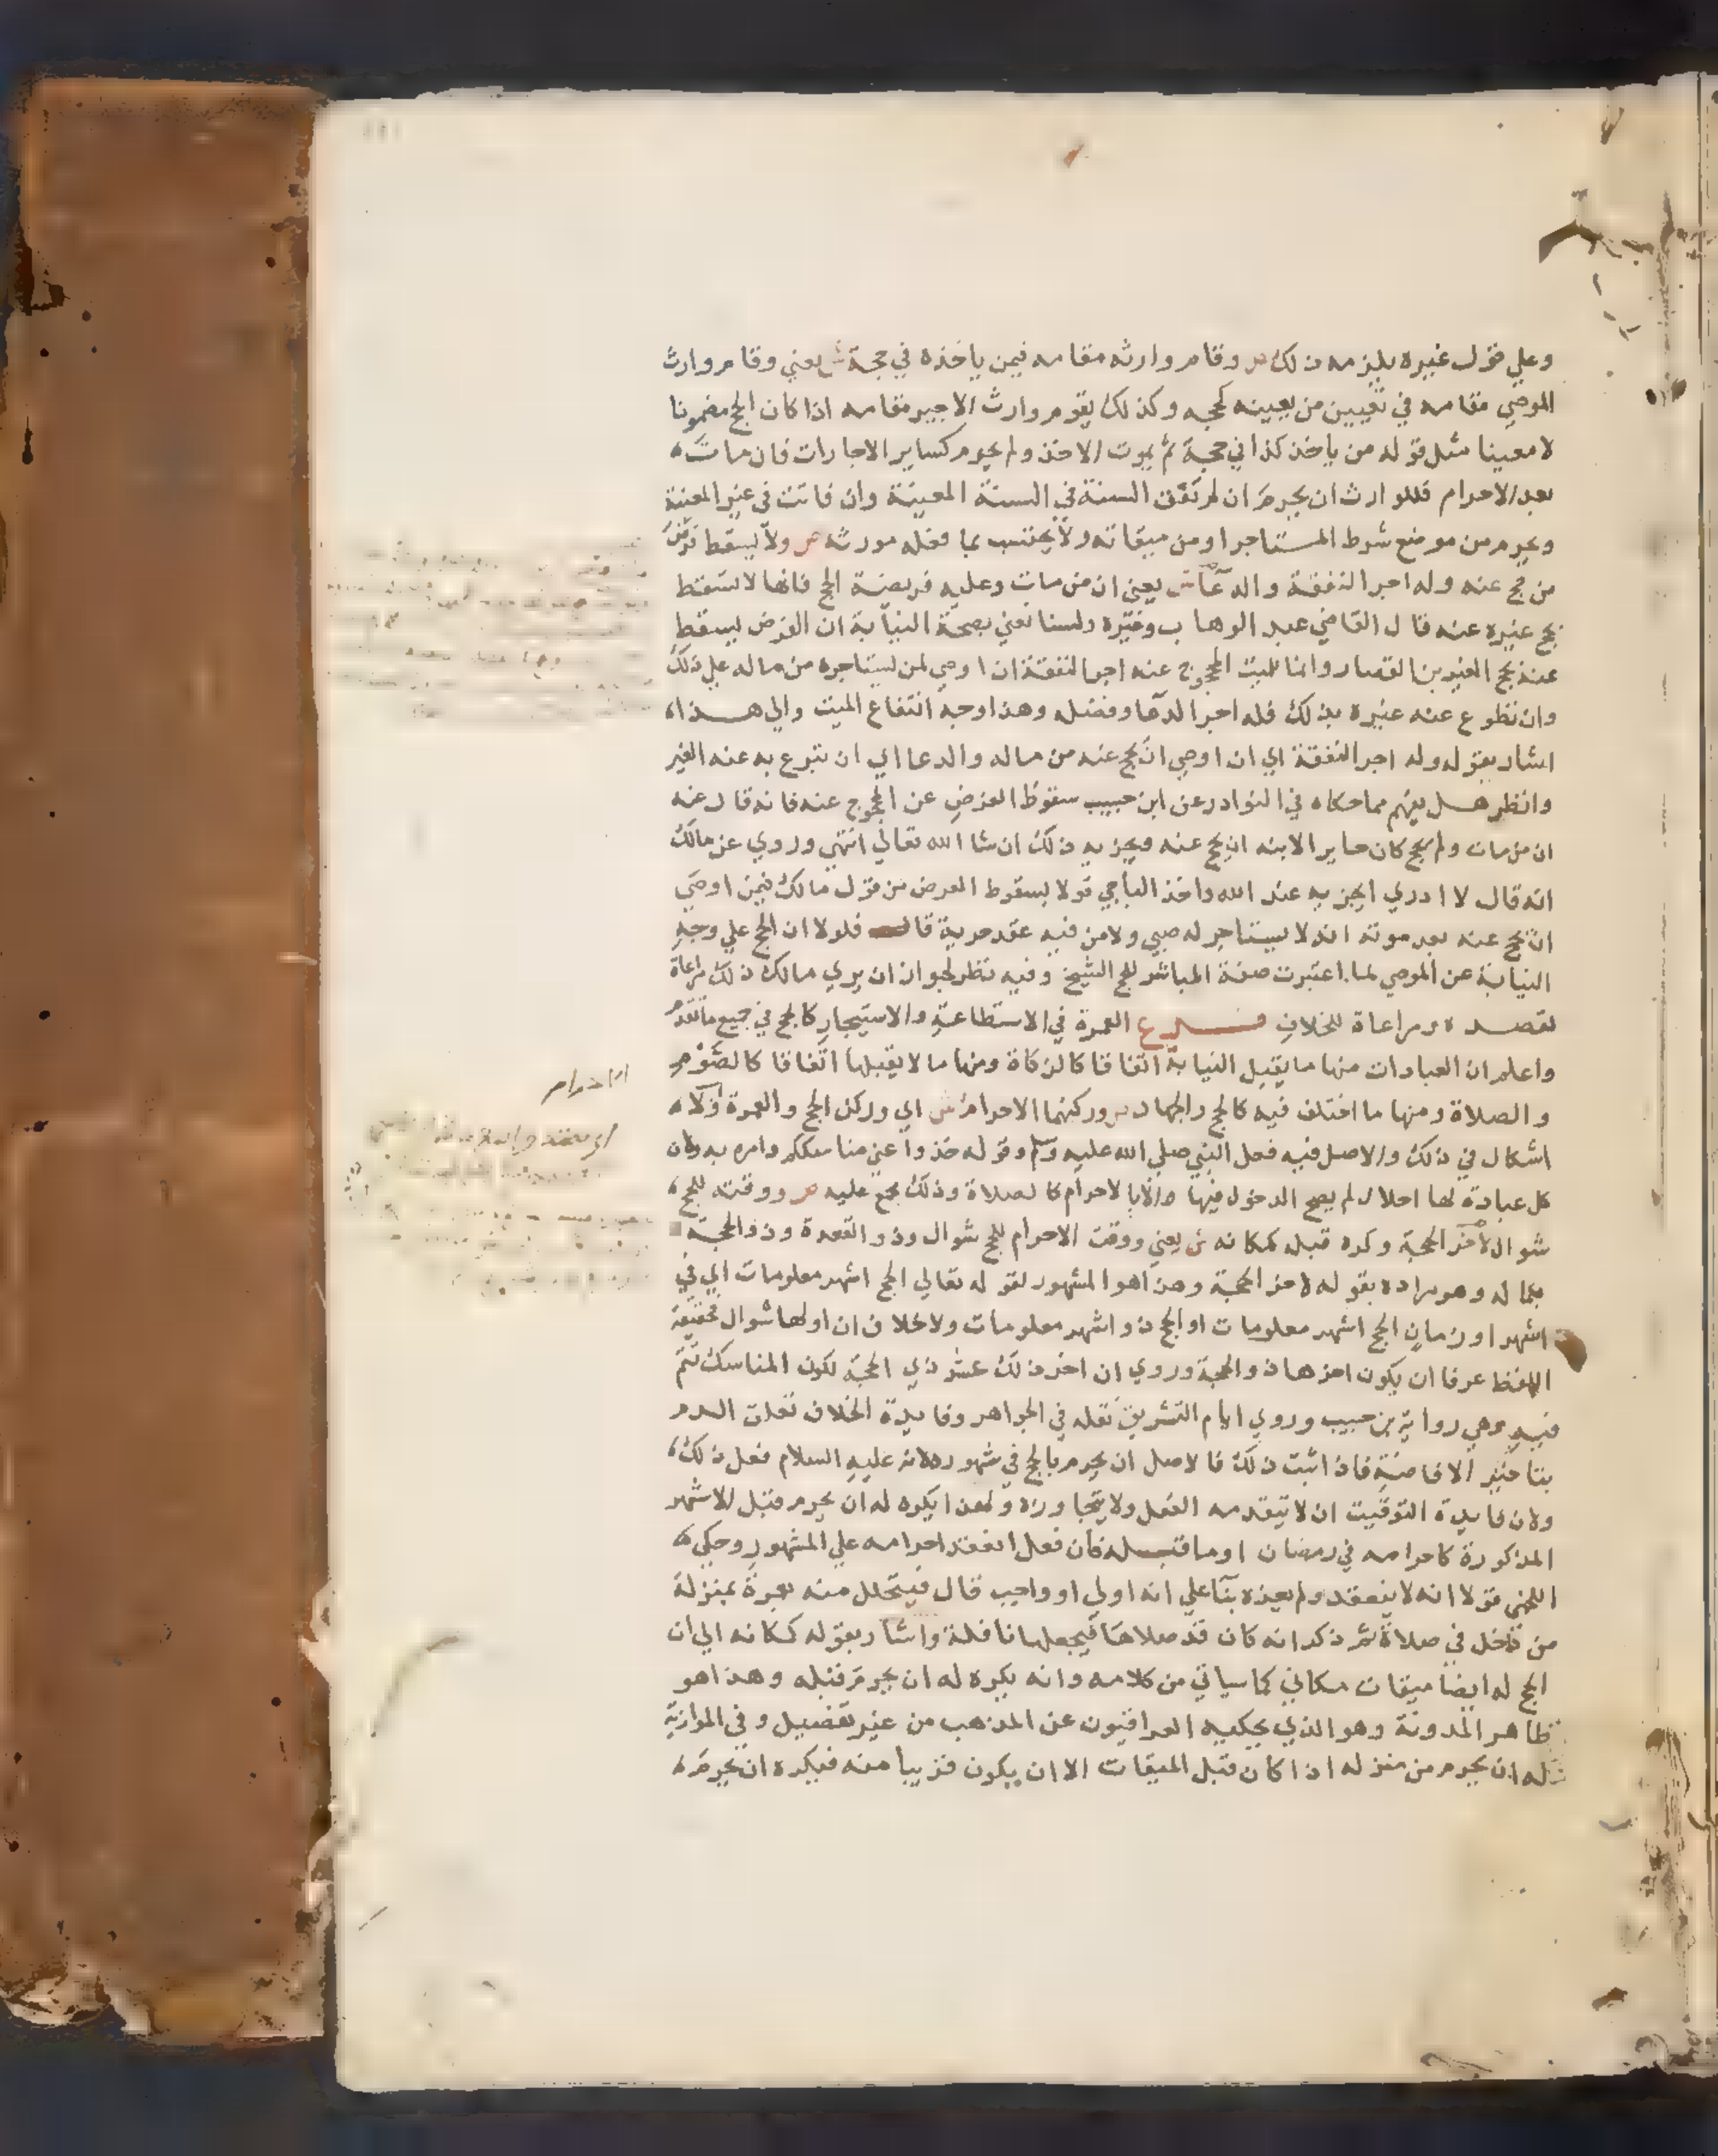 وعلي قول غيره يلزمه ذلك ص وقام وارثه مقامه فيمن ياخذه في حجة ش يعني وقام وارث
الموصي مقامه في تعيين من يعينه لحجه وكذلك يقوم وارث الاجير مقامه اذا كان الحج مضمونا
لا معينا مثل قوله من ياخذ كذا في حجة ثم يموت الاخذ ولم يحرم كساير الاجارات فان مات
بعد الاحرام فللوارث ان يحرم ان لم تفت السنة في السنة المعينة وان فاتت في غير المعينة
ويحرم من موضع شرط المستاجر او من ميقاته ولا يحتسب بما فعله مورثه ص ولا يسقط فرض
من حج عنه وله اجر النفقة والدعا ش يعني ان من مات وعليه فريضة الحج فانها لا تسقط
بحج غيره عنه قال القاضي عبد الوهاب وغيره ولسنا نعني بصحة النيابة ان الفرض يسقط
عنه بحج الغير بن القصار وانما للميت المحجوج عنه اجر النفقة ان اوصي لمن يستاجره من ماله علي ذلك
وان تطوع عنه غيره بذلك فله اجر الدعا وفضله وهذا وجه انتفاع الميت والي هذا
اشار بقوله وله اجر النفقة اي ان اوصي ان يحج عنه من ماله والدعا اي ان تبرع به عنه الغير
وانظر هل يفهم مما حكاه في النوادر عن ابن حبيب سقوط الفرض عن المحجوج عنه فانه قال عنه
ان من مات ولم يحج كان جايرا لابنه ان يحج عنه ويجزيه ذلك ان شا الله تعالي انتهي وروي عن مالك
انه قال لا ادري ايجزيه عند الله واخذ الباجي قولا بسقوط الفرض من قول مالك فيمن اوصي
ان يحج عنه بعد موته انه لا يستاجر له صبي ولا من فيه عقد حرية قال فلولا ان الحج علي وجه
النيابة عن الموصي لما اعتبرت صفة المباشر للحج الشيخ وفيه نظر لجواز ان يري مالك ذلك مراعاة
لقصده ومراعاة للخلاف فرع العمرة في الاستطاعة والاستيجار كالحج في جميع ما تقدم
واعلم ان العبادات منها ما يقبل النيابة اتفاقا كالزكاة ومنها ما لا يقبلها اتفاقا كالصوم
والصلاة ومنها ما اختلف فيه كالحج والجهاد ص وركنهما الاحرام ش اي وركن الحج والعمرة اولا
اشكال في ذلك والاصل فيه فعل النبي صلي الله عليه وسلم وقوله خذوا عني مناسككم وامره به ولان
كل عبادة لها احلال لم يصح الدخول فيها الا بالاحرام كالصلاة وذلك مجمع عليه ص ووقته للحج
شوال لاخر الحجة وكره قبله كمكانه ش يعني ووقت الاحرام للحج شوال وذو القعدة وذو الحجة
بكماله وهو مراده بقوله لاخر الحجة وهذا هو المشهور لقوله تعالي الحج اشهر معلومات اي في
اشهر او زمان الحج اشهر معلومات او الحج ذو اشهر معلومات ولا خلاف ان اولها شوال فحقيقة
اللفظ عرفا ان يكون اخرها ذو الحجة وروي ان اخر ذلك عشر ذي الحجة لكون المناسك تتم
فيه وهي رواية بن حبيب وروي ايام التشريق نقله في الجواهر وفايدة الخلاف تعلق الدم
بتاخير الافاضة فاذا ثبت ذلك فالاصل ان يحرم بالحج في شهوره لانه عليه السلام فعل ذلك
ولان فايدة التوقيت ان لا يتقدمه الفعل ولا يتجاوزه ولهذا يكره له ان يحرم قبل الاشهر
المذكورة كاحرامه في رمضان او ما قبله فان فعل انعقد احرامه علي المشهور وحكي
اللخمي قولا انه لا ينعقد ولم يعزه بنا علي انه اولي او واجب قال فيتحلل منه بعمرة بمنزلة
من دخل في صلاة ثم ذكر انه كان قد صلاها فيجعلها نافلة واشار بقوله كمكانه الي ان
الحج له ايضا ميقات مكاني كما سياتي من كلامه وانه يكره له ان يحرم قبله وهذا هو
ظاهر المدونة وهو الذي يحكيه العراقيون عن المذهب من غير تفصيل وفي الموازية
له ان يحرم من منزله اذا كان قبل الميقات الا ان يكون قريبا منه فيكره ان يحرم